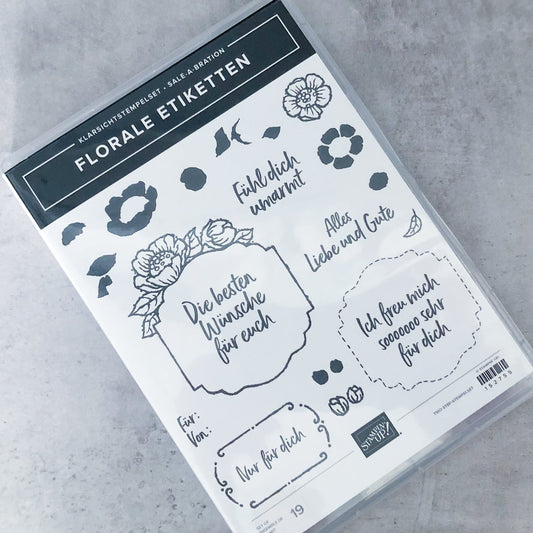 KLARSICHTSTEMPELSET • SALE-A-BRATION
FLORALE ETIKETTEN
Fühl dich
umarmt
Alles
Liebe und Gute
Die besten
Wünsche
für euch
Ich freu mich
sooooooo sehr
für dich
Für:
Von:
Nur für dich
STAMPIN'
UP!
TWO-STEP-STEMPELSET
152755
SET OF
19